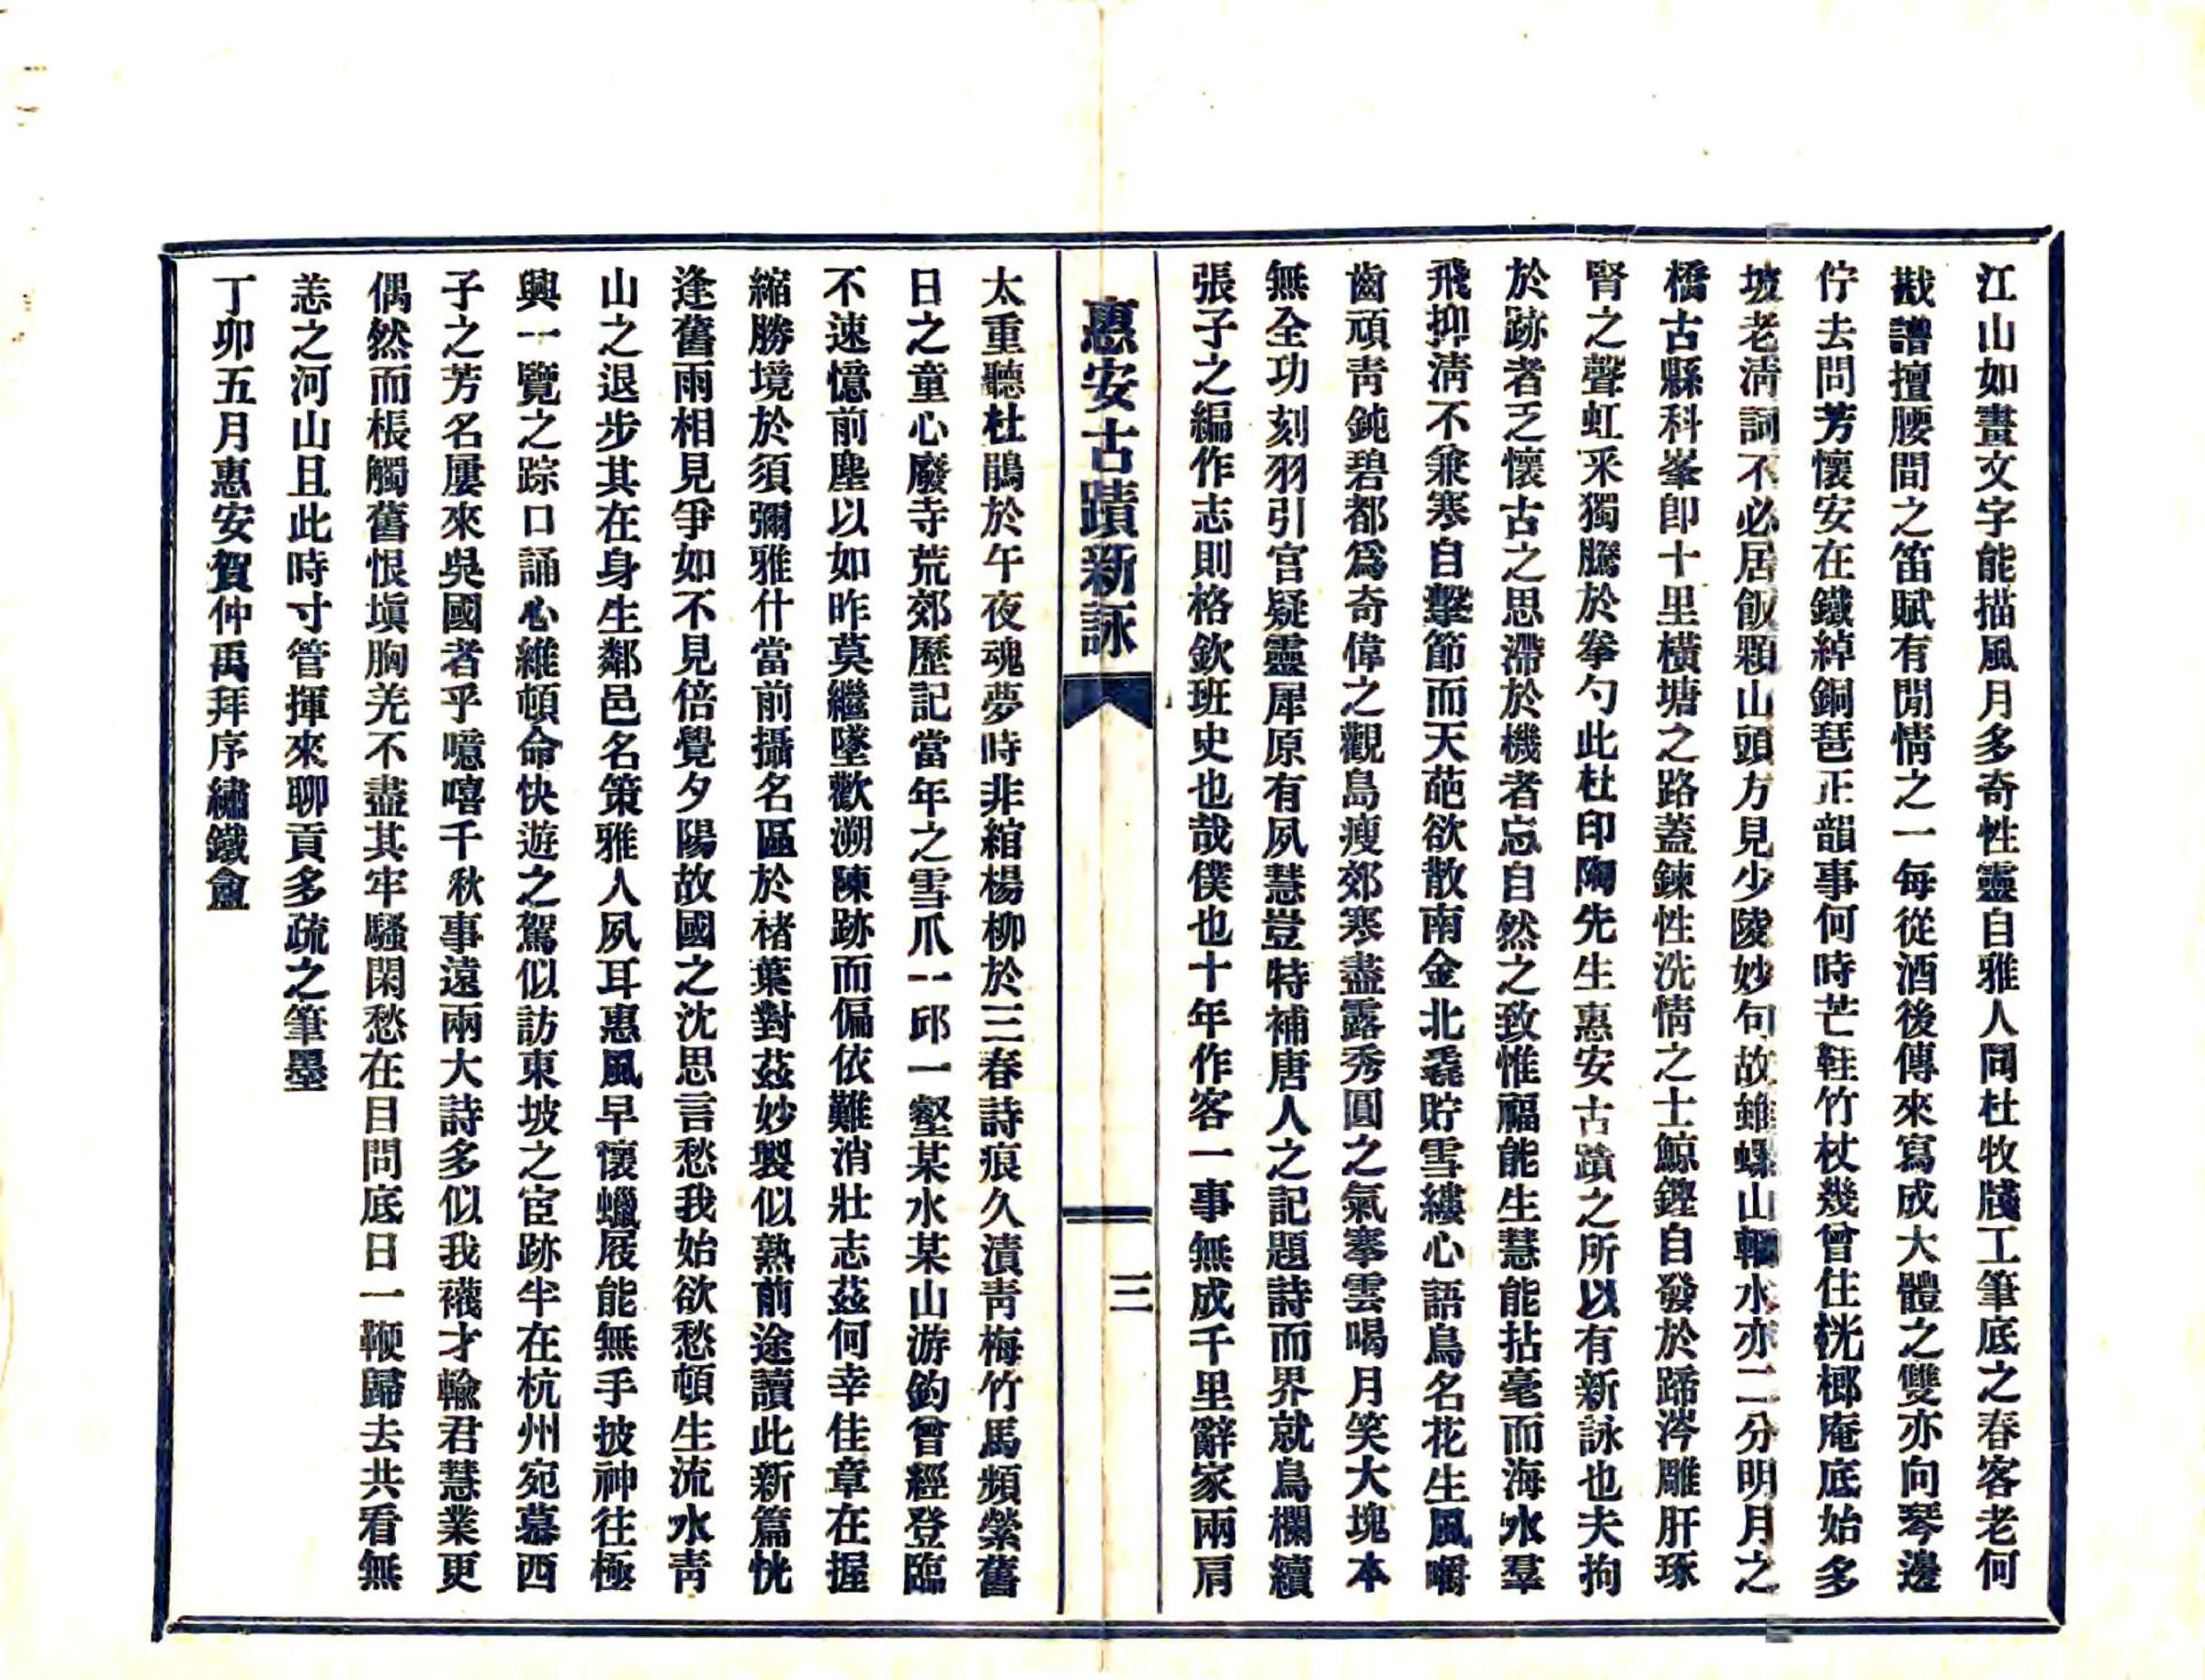 江山如畫文字能描風月多奇性靈自雅人同杜牧牋工筆底之春客老何
戡譜擅腰間之笛賦有閒情之一每從酒後傳來寫成大體之雙亦向琴邊
佇去問芳懷安在鐵綽銅琶正韻事何時芒鞋竹杖幾曾住桄榔庵底始多
坡老淸詞不必居飯顆山頭方見少陵妙句故雖螺山輞水亦二分明月之
橋古縣科峯卽十里橫塘之路蓋鍊性洗情之士鯨鏗自發於蹄涔雕肝琢
腎之聲虹采獨騰於拳勺此杜印陶先生惠安古蹟之所以有新詠也夫拘
於跡者乏懷古之思滯於機者忘自然之致惟福能生慧能拈毫而海水羣
飛抑淸不兼寒自擊節而天葩欲散南金北毳貯雪縷心語鳥名花生風嚼
齒頑靑鈍碧都爲奇偉之觀島瘦郊寒盡露秀圓之氣搴雲喝月笑大塊本
無全功刻羽引宮疑靈犀原有夙慧豈特補唐人之記題詩而界就烏欄續
張子之編作志則格欽班史也哉僕也十年作客一事無成千里辭家兩肩
惠安古蹟新詠
三
太重聽杜鵑於午夜魂夢時非綰楊柳於三春詩痕久漬靑梅竹馬頻縈舊
日之童心廢寺荒郊歷記當年之雪爪一邱一壑某水某山游釣曾經登臨
不速憶前塵以如昨莫繼墜歡溯陳跡而偏依難消壯志茲何幸佳章在握
縮勝境於須彌雅什當前攝名區於楮葉對茲妙製似熟前途讀此新篇恍
逢舊雨相見爭如不見倍覺夕陽故國之沈思言愁我始欲愁頓生流水靑
山之退步其在身生鄰邑名策雅人夙耳惠風早懷蠟屐能無手披神往極
興一覽之踪口誦心維頓命快遊之駕似訪東坡之宦跡半在杭州宛慕西
子之芳名屢來吳國者乎噫嘻千秋事遠兩大詩多似我襪才輸君慧業更
偶然而棖觸舊恨塡胸羌不盡其牢騷閑愁在目問底日一鞭歸去共看無
恙之河山且此時寸管揮來聊貢多疏之筆墨
丁卯五月惠安賀仲禹拜序繡鐵盦